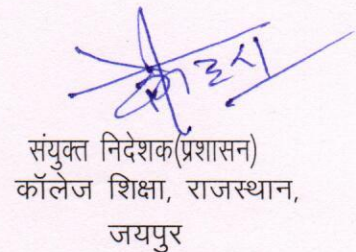 संयुक्त निदेशक(प्रशासन)
कॉलेज शिक्षा, राजस्थान,
जयपुर